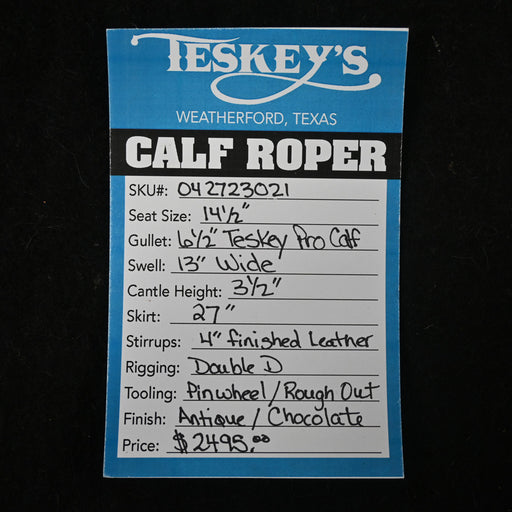 TESKEY'S
WEATHERFORD, TEXAS
CALF ROPER
SKU#: 042723021
Seat Size: 14½"
Gullet: 6½" Teskey Pro Calf
Swell: 13" Wide
Cantle Height: 3½"
Skirt: 27"
Stirrups: 4" finished Leather
Rigging: Double D
Tooling: Pinwheel/Rough Out
Finish: Antique/Chocolate
Price: $2495.00